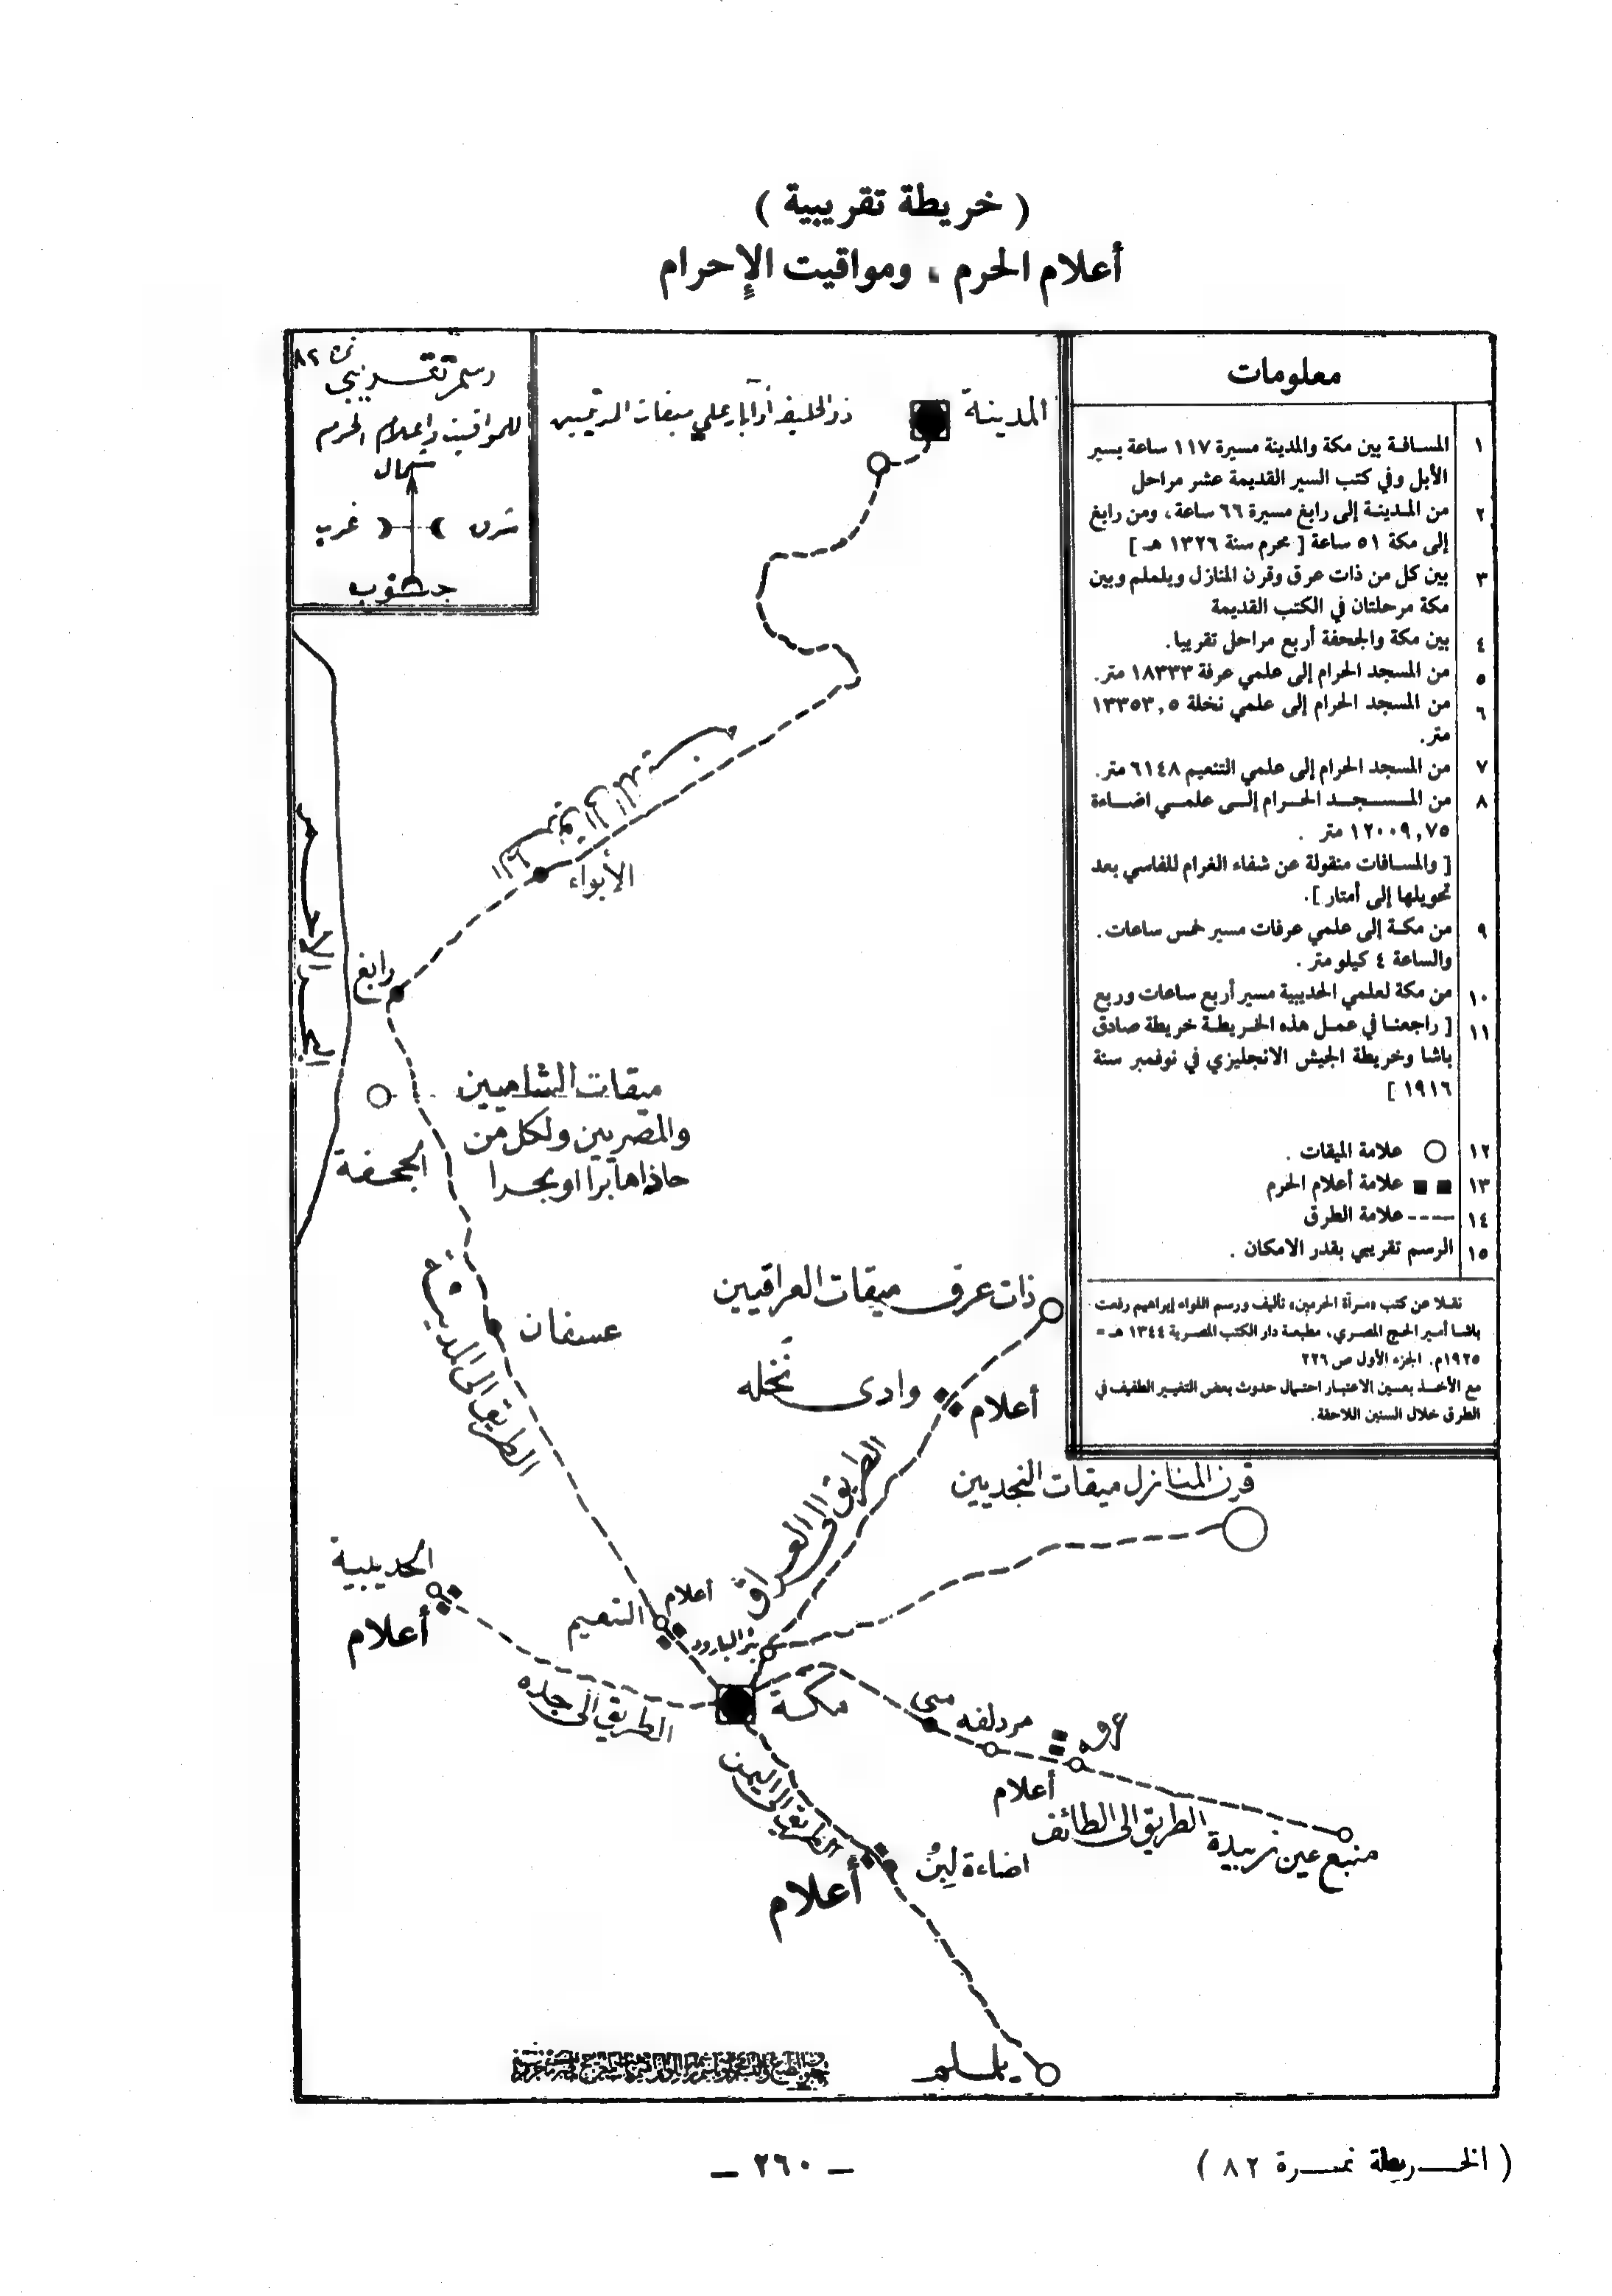 ( خريطة تقريبية )
أعلام الحرم ، ومواقيت الإحرام
معلومات
١ المسافة بين مكة والمدينة مسيرة ١١٧ ساعة بسير
الأبل وفي كتب السير القديمة عشر مراحل
٢ من المدينة إلى رابغ مسيرة ٦٦ ساعة ، ومن رابغ
إلى مكة ٥١ ساعة [ محرم سنة ١٣٢٦ هـ ]
٣ بين كل من ذات عرق وقرن المنازل ويلملم وبين
مكة مرحلتان في الكتب القديمة
٤ بين مكة والجحفة أربع مراحل تقريبا.
٥ من المسجد الحرام إلى علمي عرفة ١٨٣٣٣ متر.
٦ من المسجد الحرام إلى علمي نخلة ١٣٣٥٣,٥
متر.
٧ من المسجد الحرام إلى علمي التنعيم ٦١٤٨ متر.
٨ من المسجد الحرام إلى علمي اضاءة
١٢٠٠٩,٧٥ متر .
[ والمسافات منقولة عن شفاء الغرام للفاسي بعد
تحويلها إلى أمتار ].
٩ من مكة إلى علمي عرفات مسير خمس ساعات .
والساعة ٤ كيلو متر .
١٠ من مكة لعلمي الحديبية مسير أربع ساعات وربع
١١ [ راجعنا في عمل هذه الخريطة خريطة صادق
باشا وخريطة الجيش الانجليزي في نوفمبر سنة
١٩١٦ ]
١٢ علامة الميقات .
١٣ علامة أعلام الحرم
١٤ علامة الطرق
١٥ الرسم تقريبي بقدر الامكان .
نقلا عن كتب «مرآة الحرمين» تأليف ورسم اللواء إبراهيم رفعت
باشا أمير الحج المصري، مطبعة دار الكتب المصرية ١٣٤٤ هـ =
١٩٢٥م. الجزء الأول ص ٢٢٦
مع الأخذ بعين الاعتبار احتمال حدوث بعض التغيير الطفيف في
الطرق خلال السنين اللاحقة.
نمرة ٨٢
رسم تقريبي
للمواقيت واعلام الحرم
شمال
شرق
غرب
جنوب
المدينة
ذو الحليفة أو آبار علي ميقات المدنيين
الأبواء
رابغ
البحر الاحمر
ميقات الشاميين
والمصريين ولكل من
حاذاها برا او بحرا
الجحفة
عسفان
الطريق الى المدينة
ذات عرق ميقات العراقيين
وادى نَخله
أعلام
الطريق الى العراق
قرن المنازل ميقات النجديين
الحديبية
أعلام
التنعيم
أعلام
بئر البارود
مكة
الطريق الى جده
منى
مزدلفه
عرفه
أعلام
الطريق الى الطائف
منبع عين زبيدة
الطريق الى اليمن
اضاءة لِبْن
أعلام
يلملم
( الخريطة نمرة ٨٢ )
— ٢٦٠ —